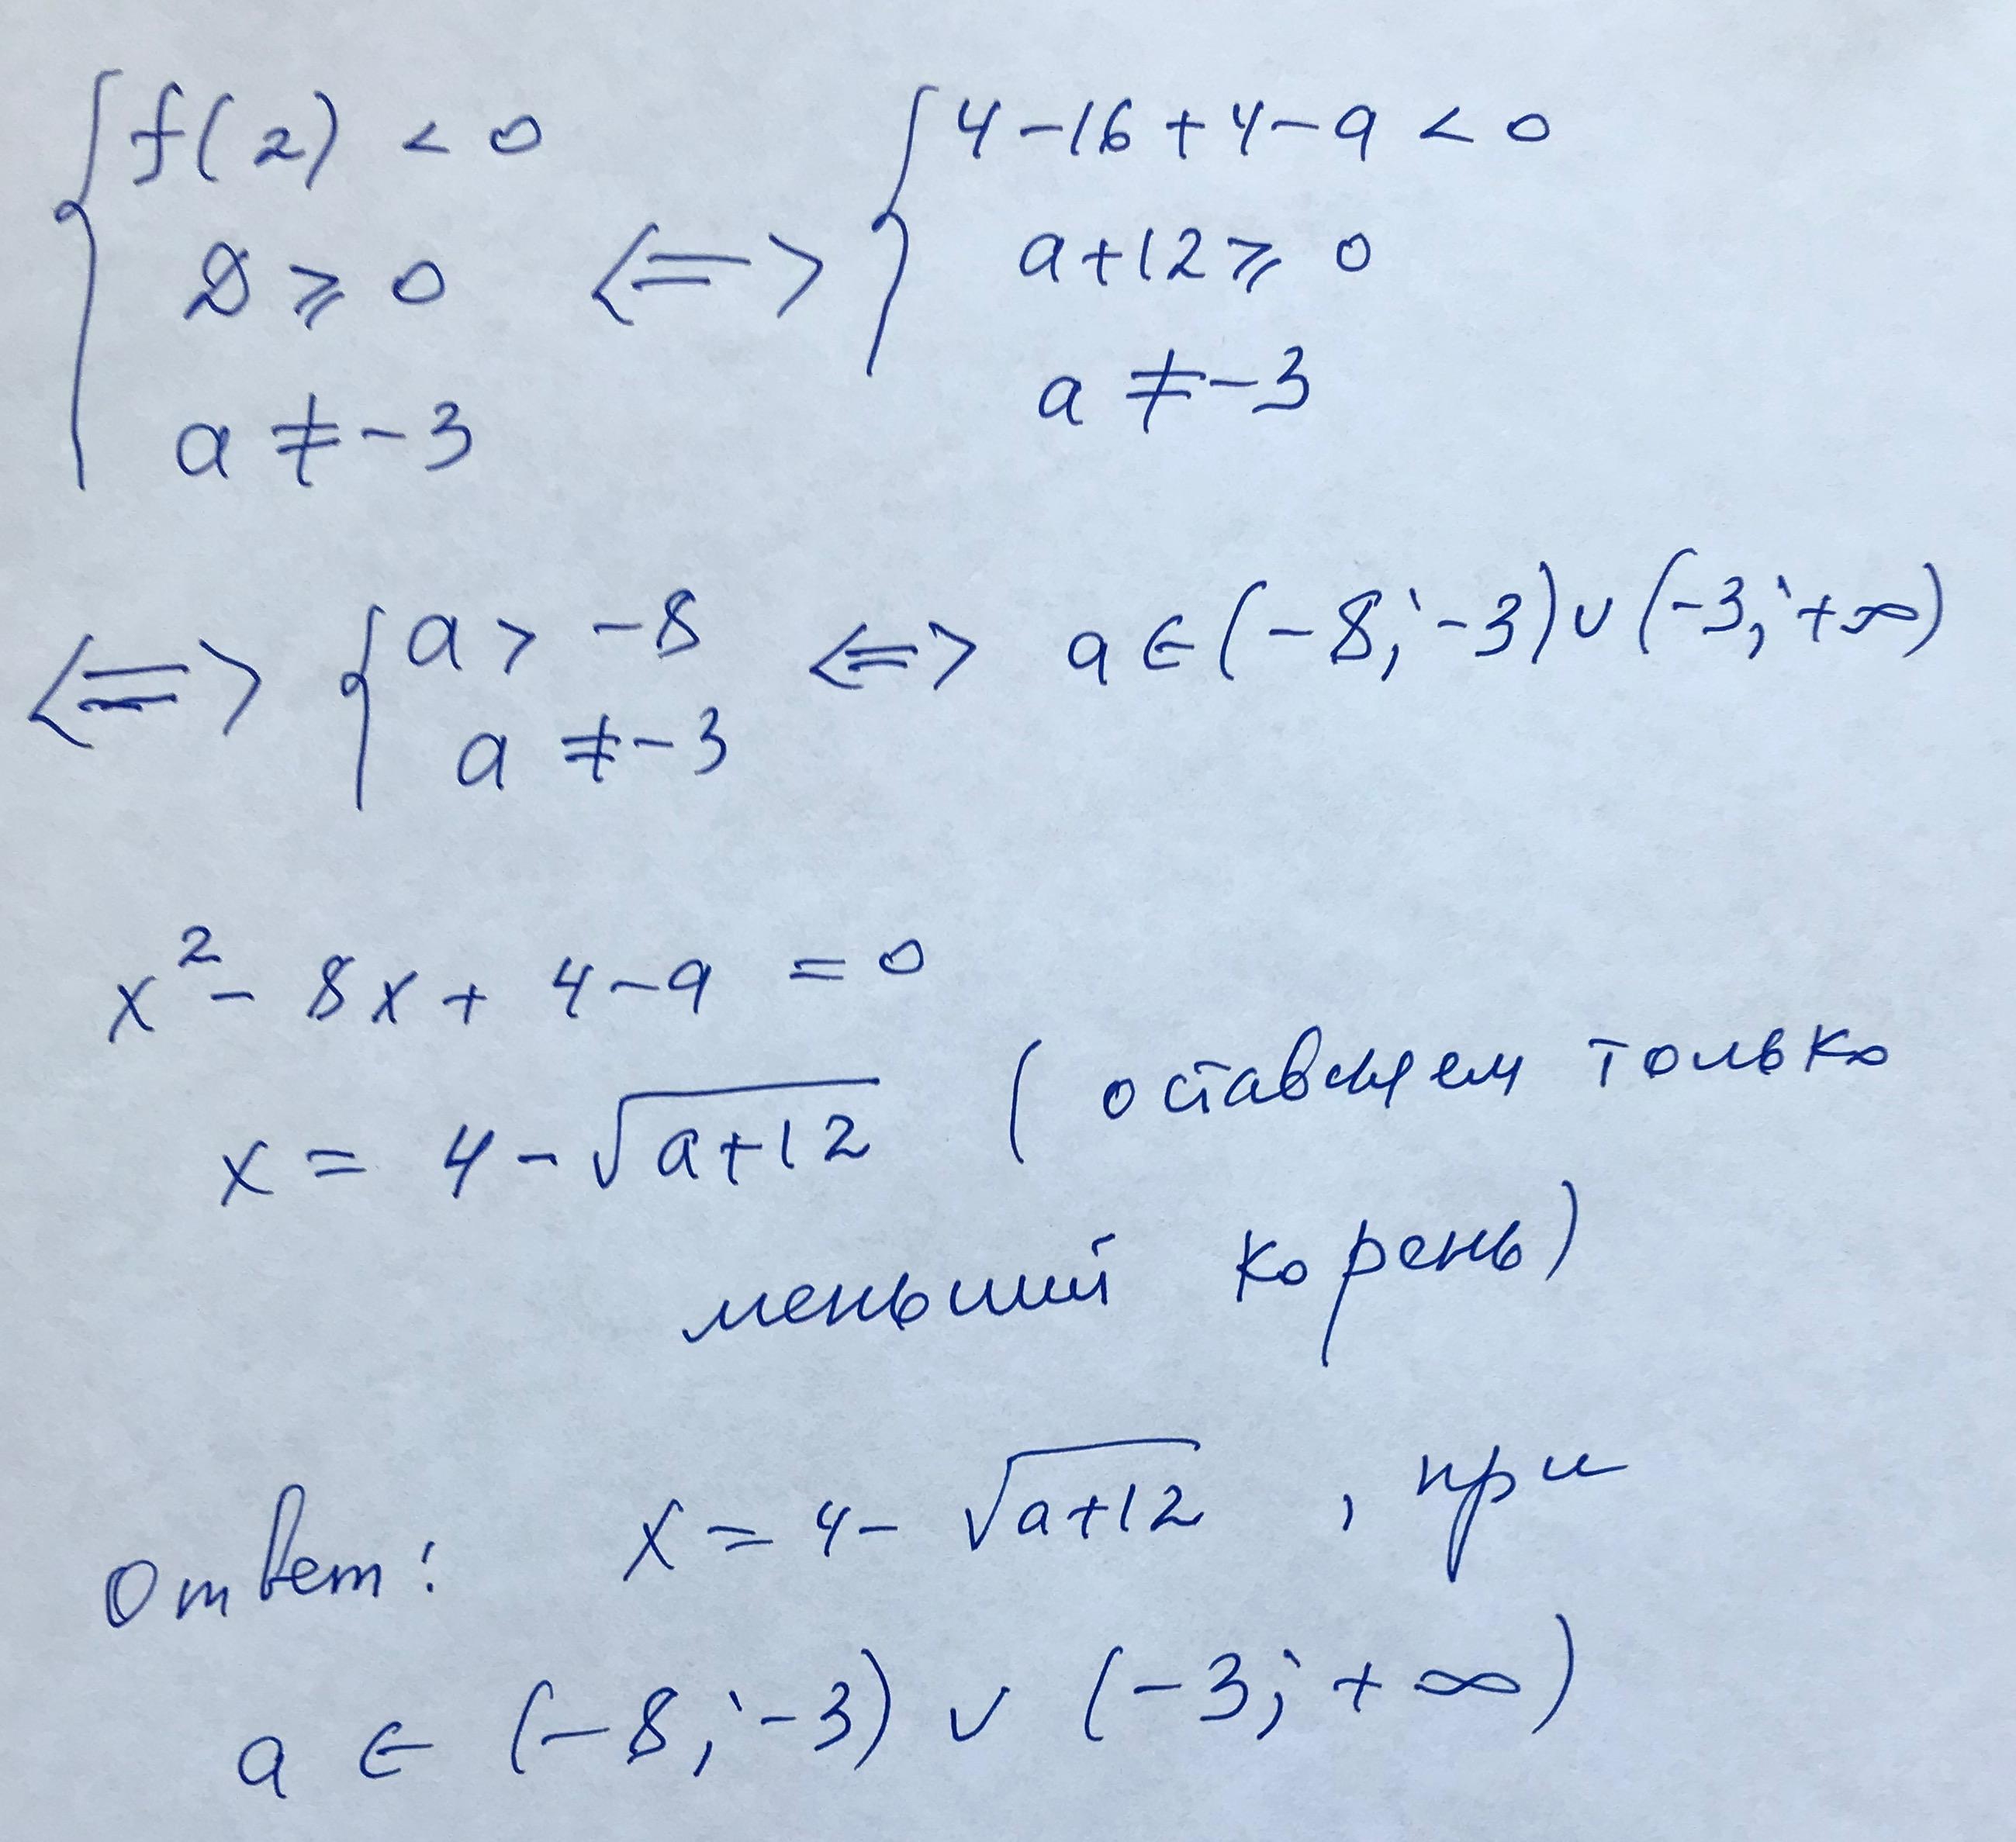 { f(2) < 0
D ⩾ 0
a ≠ -3
<=>
{ 4 - 16 + 4 - a < 0
a + 12 ⩾ 0
a ≠ -3
<=> { a > -8
a ≠ -3
<=> a ∈ (-8; -3) ∪ (-3; +∞)
x² - 8x + 4 - a = 0
x = 4 - √(a+12) ( оставляем только
меньший корень)
Ответ: x = 4 - √(a+12) , при
a ∈ (-8; -3) ∪ (-3; +∞)